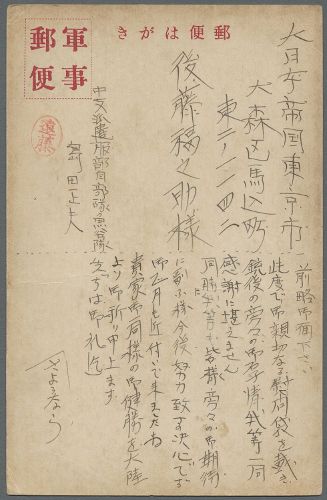 郵便はがき
軍事
郵便
大日本帝国東京市
大森区馬込町
東二ノ一一四二
後藤福之助様
中支派遣服部自部隊魚谷隊
窪田正夫
遠藤
前略御面下さい
此度は御親切なる慰問袋を戴き
銃後の旁々の御厚情我等一同
感謝に堪えません
同胞等も皆様旁々の御期待
に副ふ様今後努力致す決心です
御正月も近付いて来ましたね
貴家御一同様の御健勝を大陸
より御祈り申上ます
先づは御礼迄
さようなら